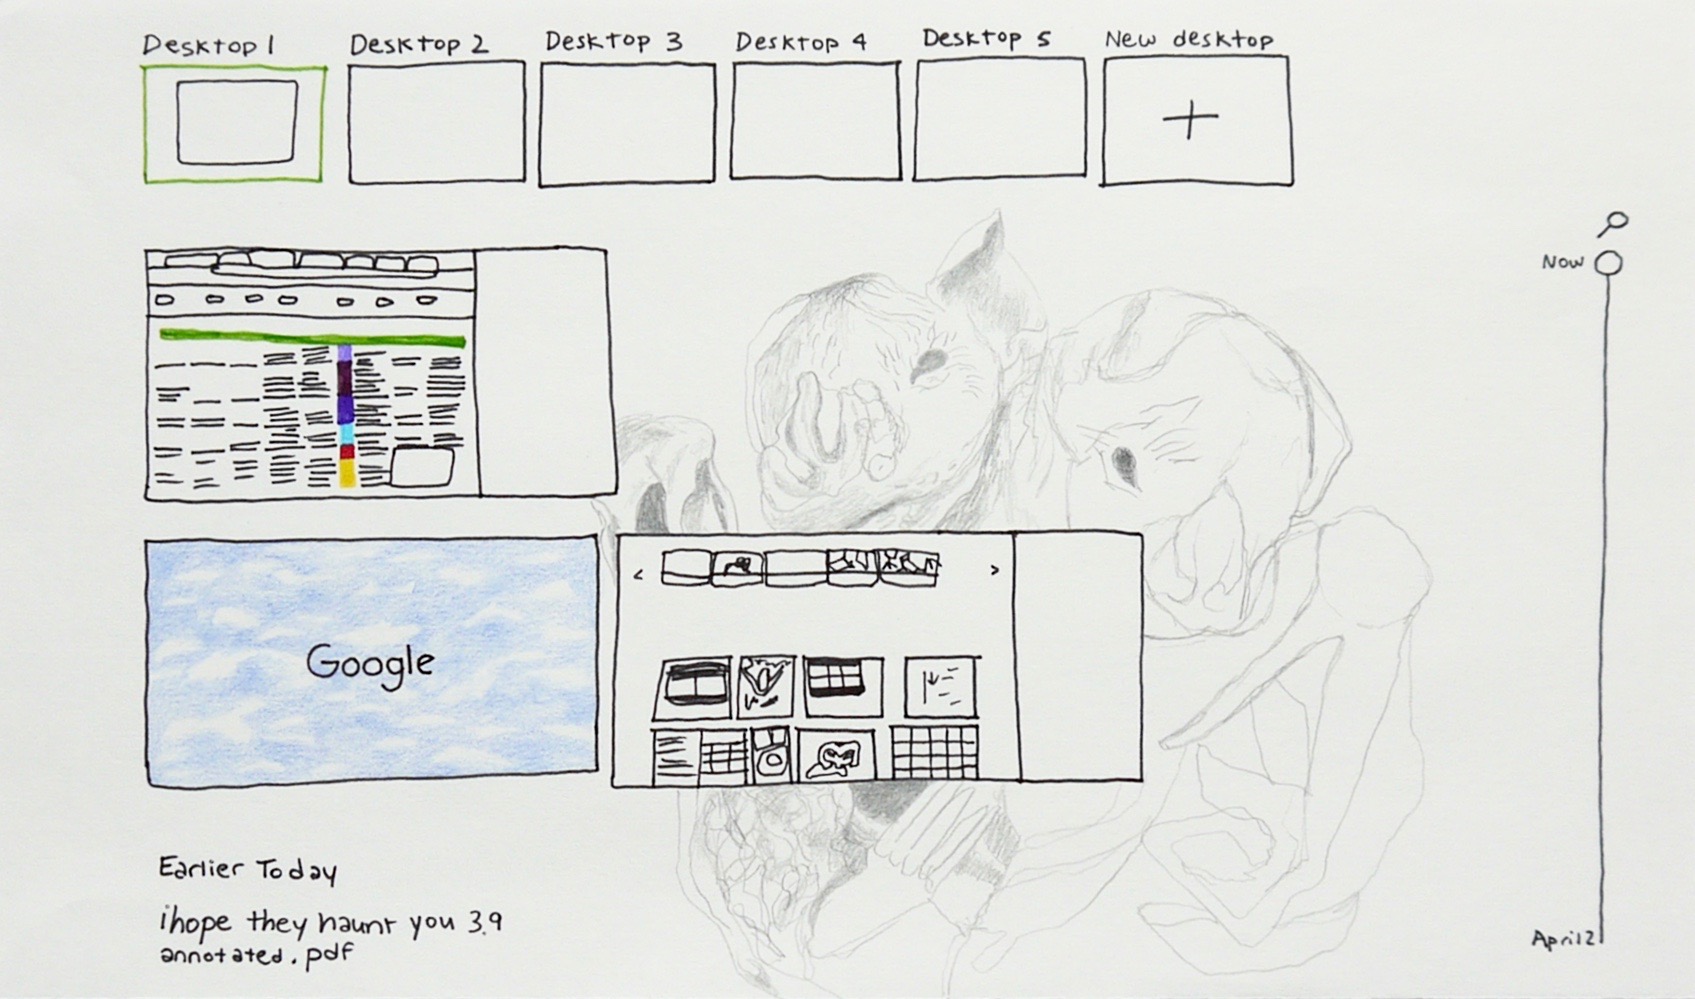 Desktop 1 Desktop 2 Desktop 3 Desktop 4 Desktop 5 New desktop
+
Now
< >
Google
Earlier Today
ihope they haunt you 3.9
annotated.pdf
April2